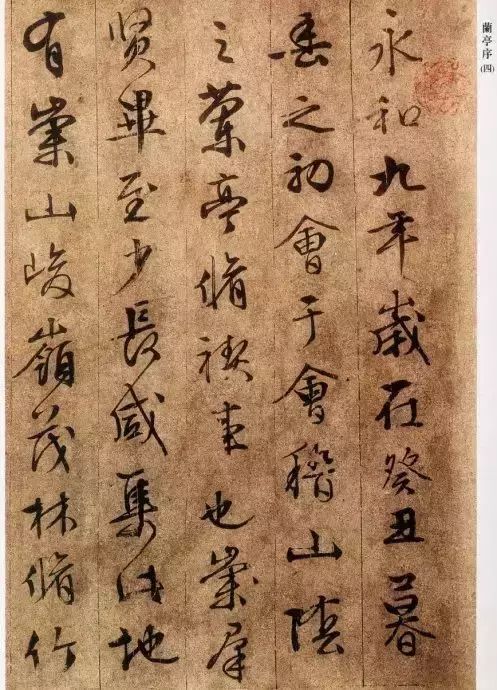 蘭亭序(四)
永和九年歲在癸丑暮
春之初會于會稽山陰
之蘭亭脩禊事也羣
賢畢至少長咸集此地
有崇山峻嶺茂林脩竹